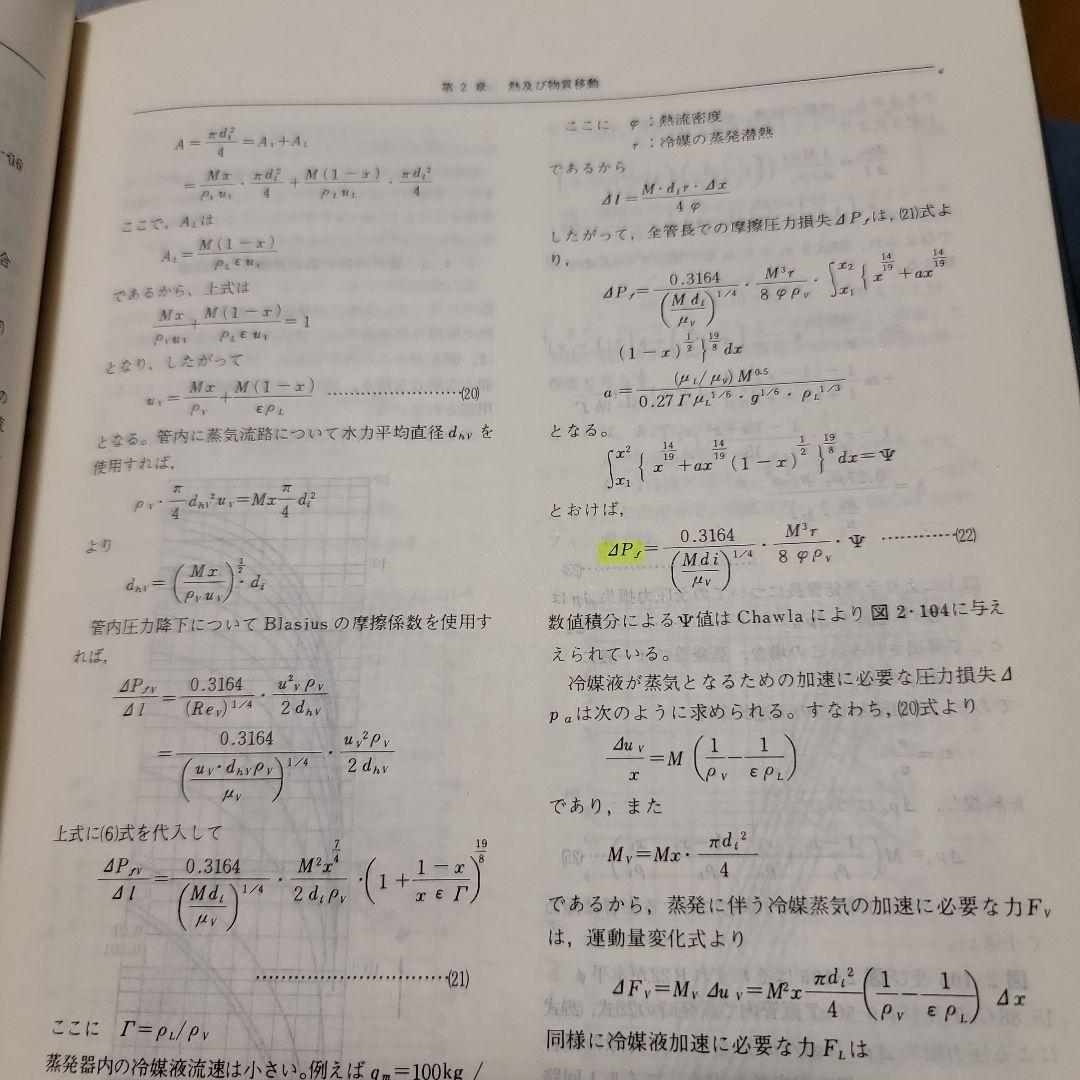 第 2 章 熱及び物質移動
A = πd_i²/4 = A_V + A_L
= Mx/(ρ_V u_V) · πd_i²/4 + M(1−x)/(ρ_L u_L) · πd_i²/4
ここで, A_L は
A_L = M(1−x)/(ρ_L ε u_V)
であるから, 上式は
Mx/(ρ_V u_V) + M(1−x)/(ρ_L ε u_V) = 1
となり, したがって
u_V = Mx/ρ_V + M(1−x)/(ερ_L) ……………………(20)
となる。管内に蒸気流路について水力平均直径 d_hV を
使用すれば,
ρ_V · π/4 d_hV² u_V = Mx π/4 d_i²
より
d_hV = (Mx/(ρ_V u_V))^{1/2} · d_i
管内圧力降下について Blasius の摩擦係数を使用す
れば,
ΔP_fV/Δl = 0.3164/(Re_V)^{1/4} · u²_V ρ_V/(2 d_hV)
= 0.3164/(u_V · d_hV ρ_V/μ_V)^{1/4} · u_V² ρ_V/(2 d_hV)
上式に(6)式を代入して
ΔP_fV/Δl = 0.3164/(Md_i/μ_V)^{1/4} · M²x^{7/4}/(2 d_i ρ_V) · (1 + (1−x)/(x ε Γ))^{19/8}
……………………………(21)
ここに Γ = ρ_L/ρ_V
蒸発器内の冷媒液流速は小さい。例えば q_m = 100kg /
ここに φ:熱流密度
r:冷媒の蒸発潜熱
であるから
Δl = M · d_i r · Δx/(4 φ)
したがって, 全管長での摩擦圧力損失 ΔP_f は, (21)式よ
り,
ΔP_f = 0.3164/(M d_i/μ_V)^{1/4} · M³r/(8 φ ρ_V) · ∫_{x1}^{x2} { x^{14/19} + ax^{14/19}
(1−x)^{1/2} }^{19/8} dx
a = (μ_L/μ_V) M^{0.5}/(0.27 Γ μ_L^{1/6} · g^{1/6} · ρ_L^{1/3})
となる。
∫_{x1}^{x2} { x^{14/19} + ax^{14/19} (1−x)^{1/2} }^{19/8} dx = Ψ
とおけば,
ΔP_f = 0.3164/(Mdi/μ_V)^{1/4} · M³r/(8 φ ρ_V) · Ψ …………(22)
数値積分によるΨ値は Chawla により 図 2・104 に与え
えられている。
冷媒液が蒸気となるための加速に必要な圧力損失Δ
p_a は次のように求められる。すなわち, (20)式より
Δu_V/x = M (1/ρ_V − 1/(ε ρ_L))
であり, また
M_V = Mx · πd_i²/4
であるから, 蒸発に伴う冷媒蒸気の加速に必要な力 F_V
は, 運動量変化式より
ΔF_V = M_V Δu_V = M²x πd_i²/4 (1/ρ_V − 1/(ε ρ_L)) Δx
同様に冷媒液加速に必要な力 F_L は